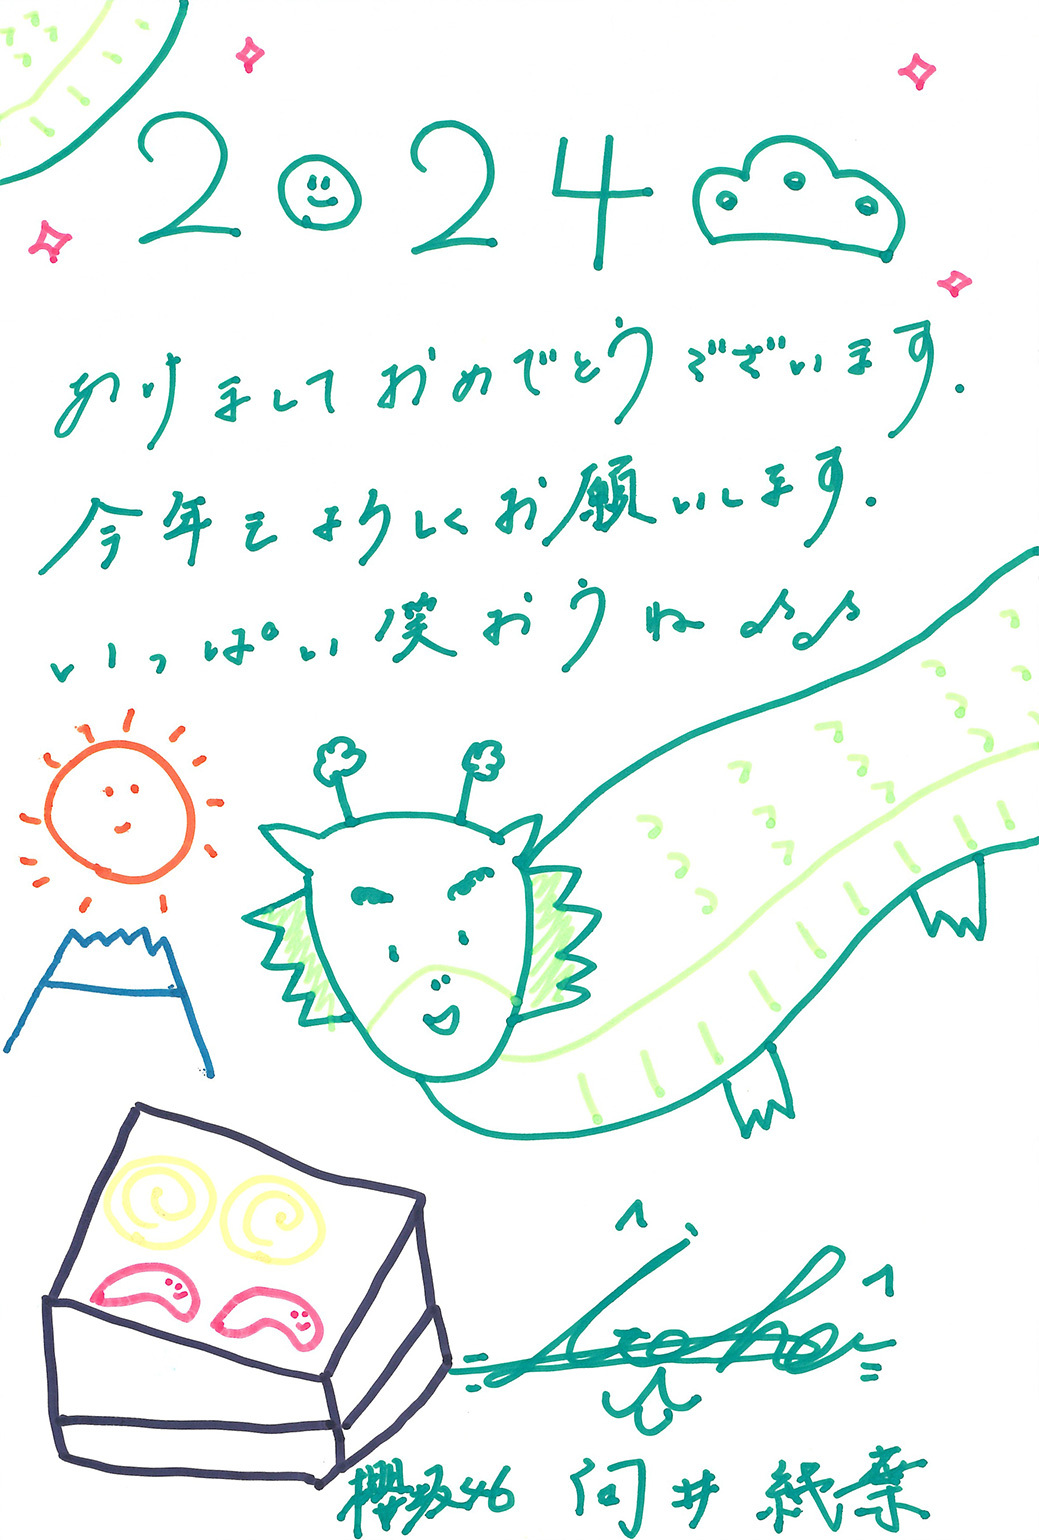 2024
あけましておめでとうございます.
今年もよろしくお願いします.
いっぱい笑おうね♪♪
櫻坂46 向井純葉